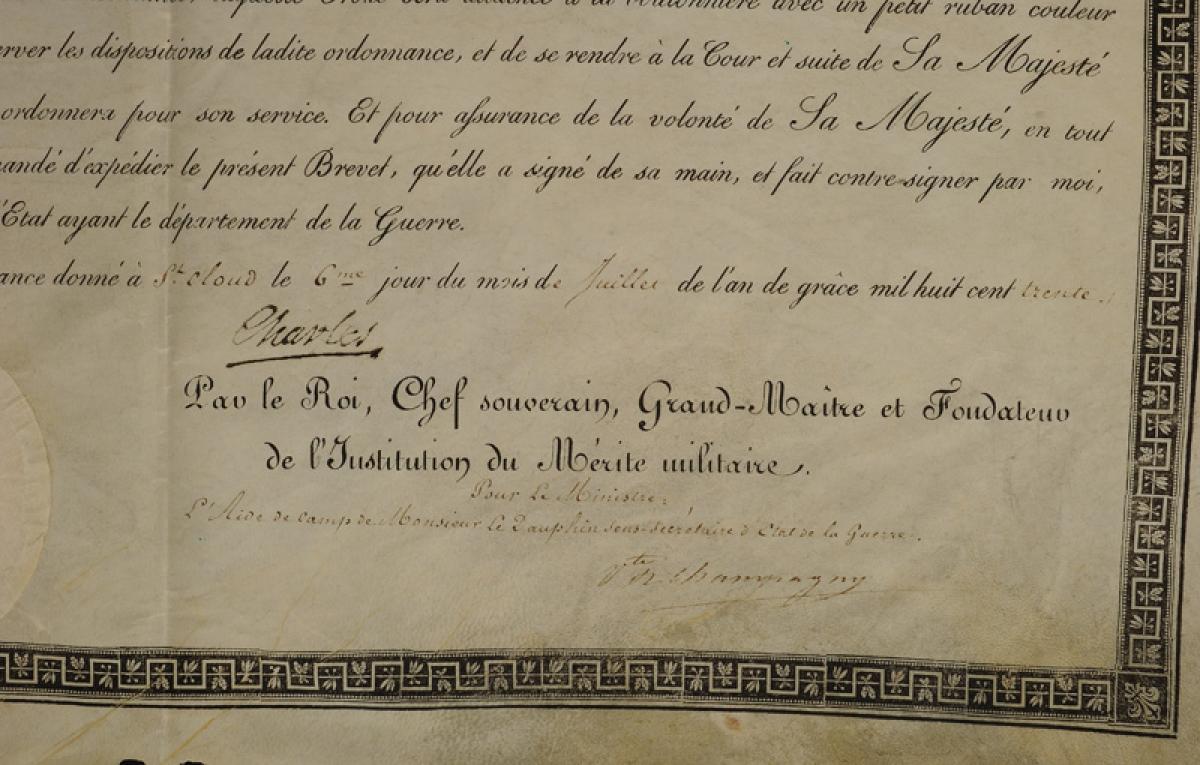 sera attachée à la boutonnière avec un petit ruban couleur
erver les dispositions de ladite ordonnance, et de se rendre à la Cour et suite de Sa Majesté
ordonnera pour son service. Et pour assurance de la volonté de Sa Majesté, en tout
andé d'expédier le présent Brevet, qu'élle a signé de sa main, et fait contre-signer par moi,
'Etat ayant le département de la Guerre.
ance donné à St. Cloud le 6me jour du mois de Juillet de l'an de grâce mil huit cent trente.
Charles
Par le Roi, Chef souverain, Grand-Maître et Fondateur
de l'Institution du Mérite militaire.
Pour Le Ministre:
L'Aide de camp de Monsieur Le Dauphin sous-secrétaire d'Etat de la Guerre.
Vte Champagny